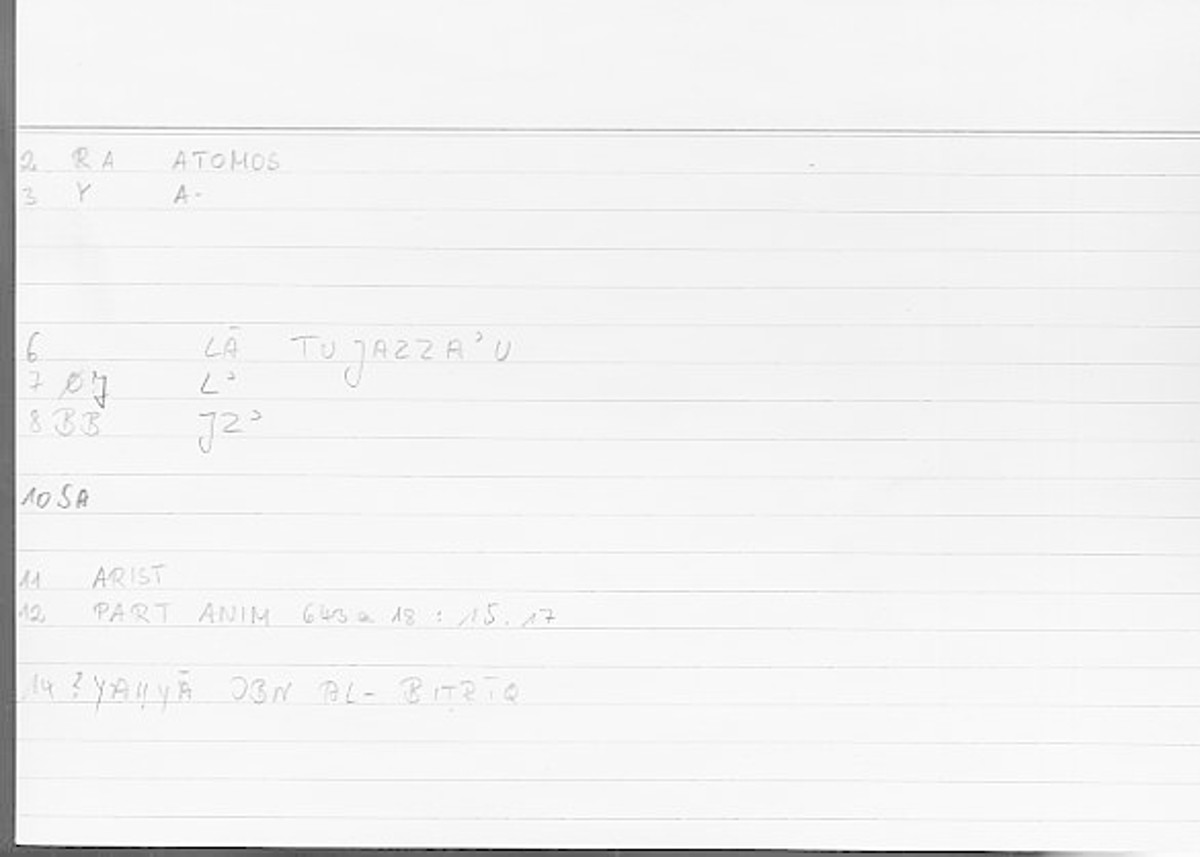 2 RA ATOMOS
3 Y A-
6 LĀ TUJAZZAʾU
7 ØJ Lʾ
8 BB JZʾ
10 SA
11 ARIST
12 PART ANIM 643a 18 : 15.17
14 ? YAḤYĀ IBN AL-BIṬRĪQ